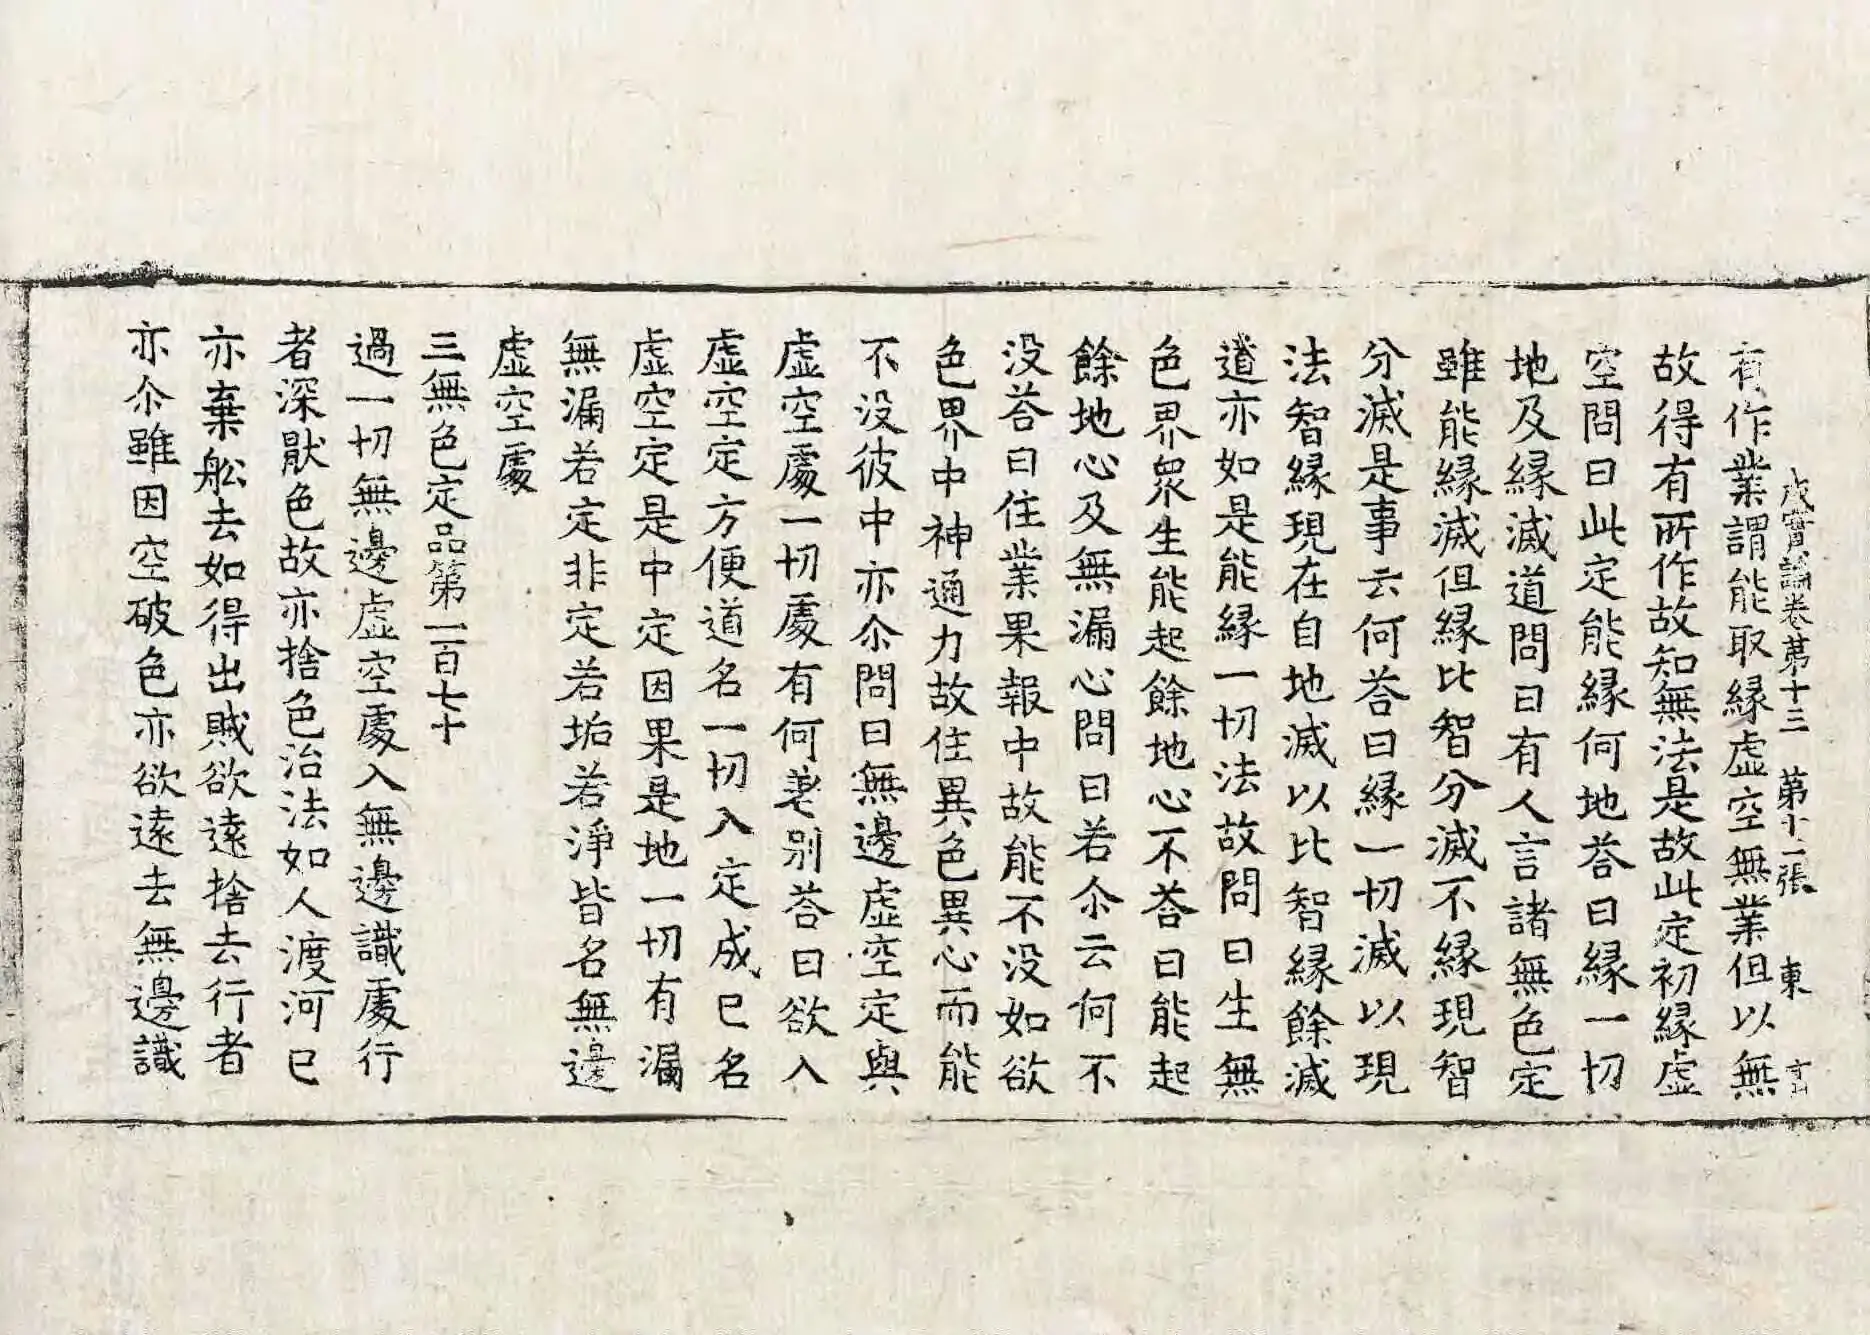 成實論卷第十三 第十二張 東
有作業謂能取縁虛空無業但以無
故得有所作故知無法是故此定初縁虛
空問曰此定能縁何地荅曰縁一切
地及縁滅道問曰有人言諸無色定
雖能縁滅但縁比智分滅不縁現智
分滅是事云何荅曰縁一切滅以現
法智縁現在自地滅以比智縁餘滅
道亦如是能縁一切法故問曰生無
色界衆生能起餘地心不荅曰能起
餘地心及無漏心問曰若尒云何不
没荅曰住業果報中故能不没如欲
色界中神通力故住異色異心而能
不没彼中亦尒問曰無邊虛空定與
虛空處一切處有何差别荅曰欲入
虛空定方便道名一切入定成已名
虛空定是中定因果是地一切有漏
無漏若定非定若垢若淨皆名無邊
虛空處
三無色定品第一百七十
過一切無邊虛空處入無邊識處行
者深猒色故亦捨色治法如人渡河已
亦棄舩去如得出賊欲遠捨去行者
亦尒雖因空破色亦欲遠去無邊識